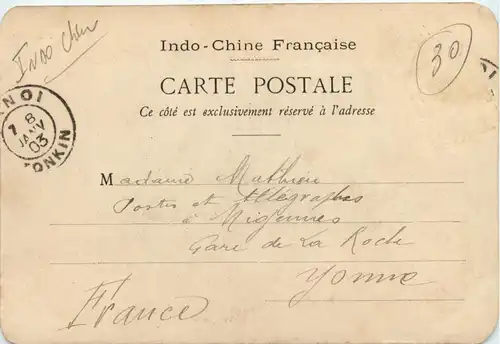 Indo Chine
30
Indo-Chine Française
CARTE POSTALE
Ce côté est exclusivement réservé à l'adresse
NOI
7 8
JANV
03
TONKIN
Madame Mathieu
Postes et télégraphes
à Migennes
Gare de La Roche
Yonne
France